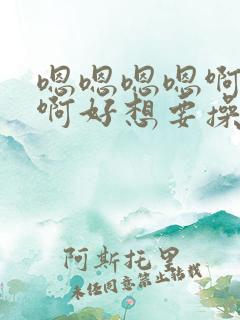 嗯嗯嗯嗯啊
啊好想要操
阿斯托里
未经同意禁止转载